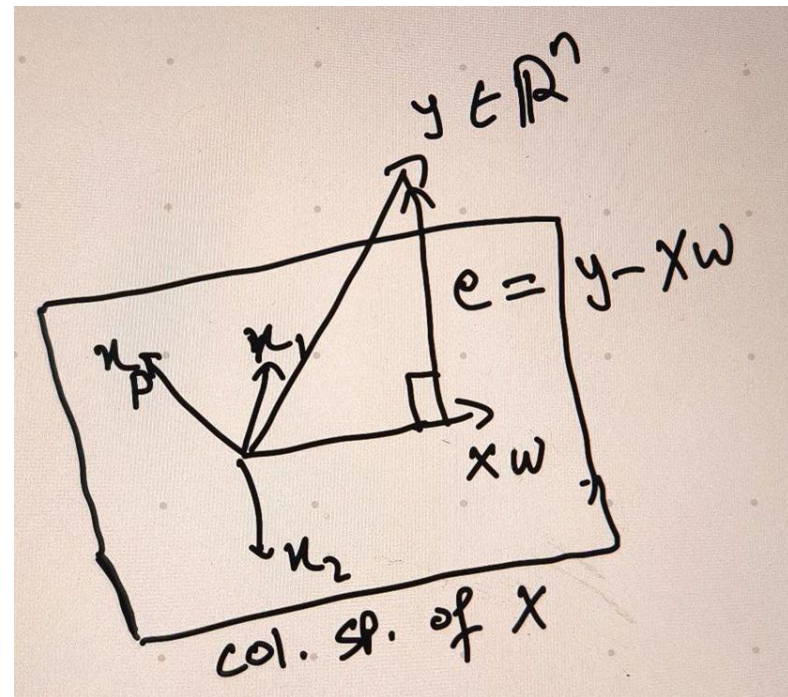 y ∈ ℝⁿ
e = y - Xw
x₁
xₚ
Xw
x₂
col. sp. of X